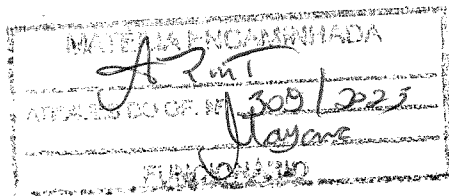 MATÉRIA ENCAMINHADA
A
ATRAVÉS DO OF. Nº 309 / 2023
Mayane
FUNCIONÁRIO